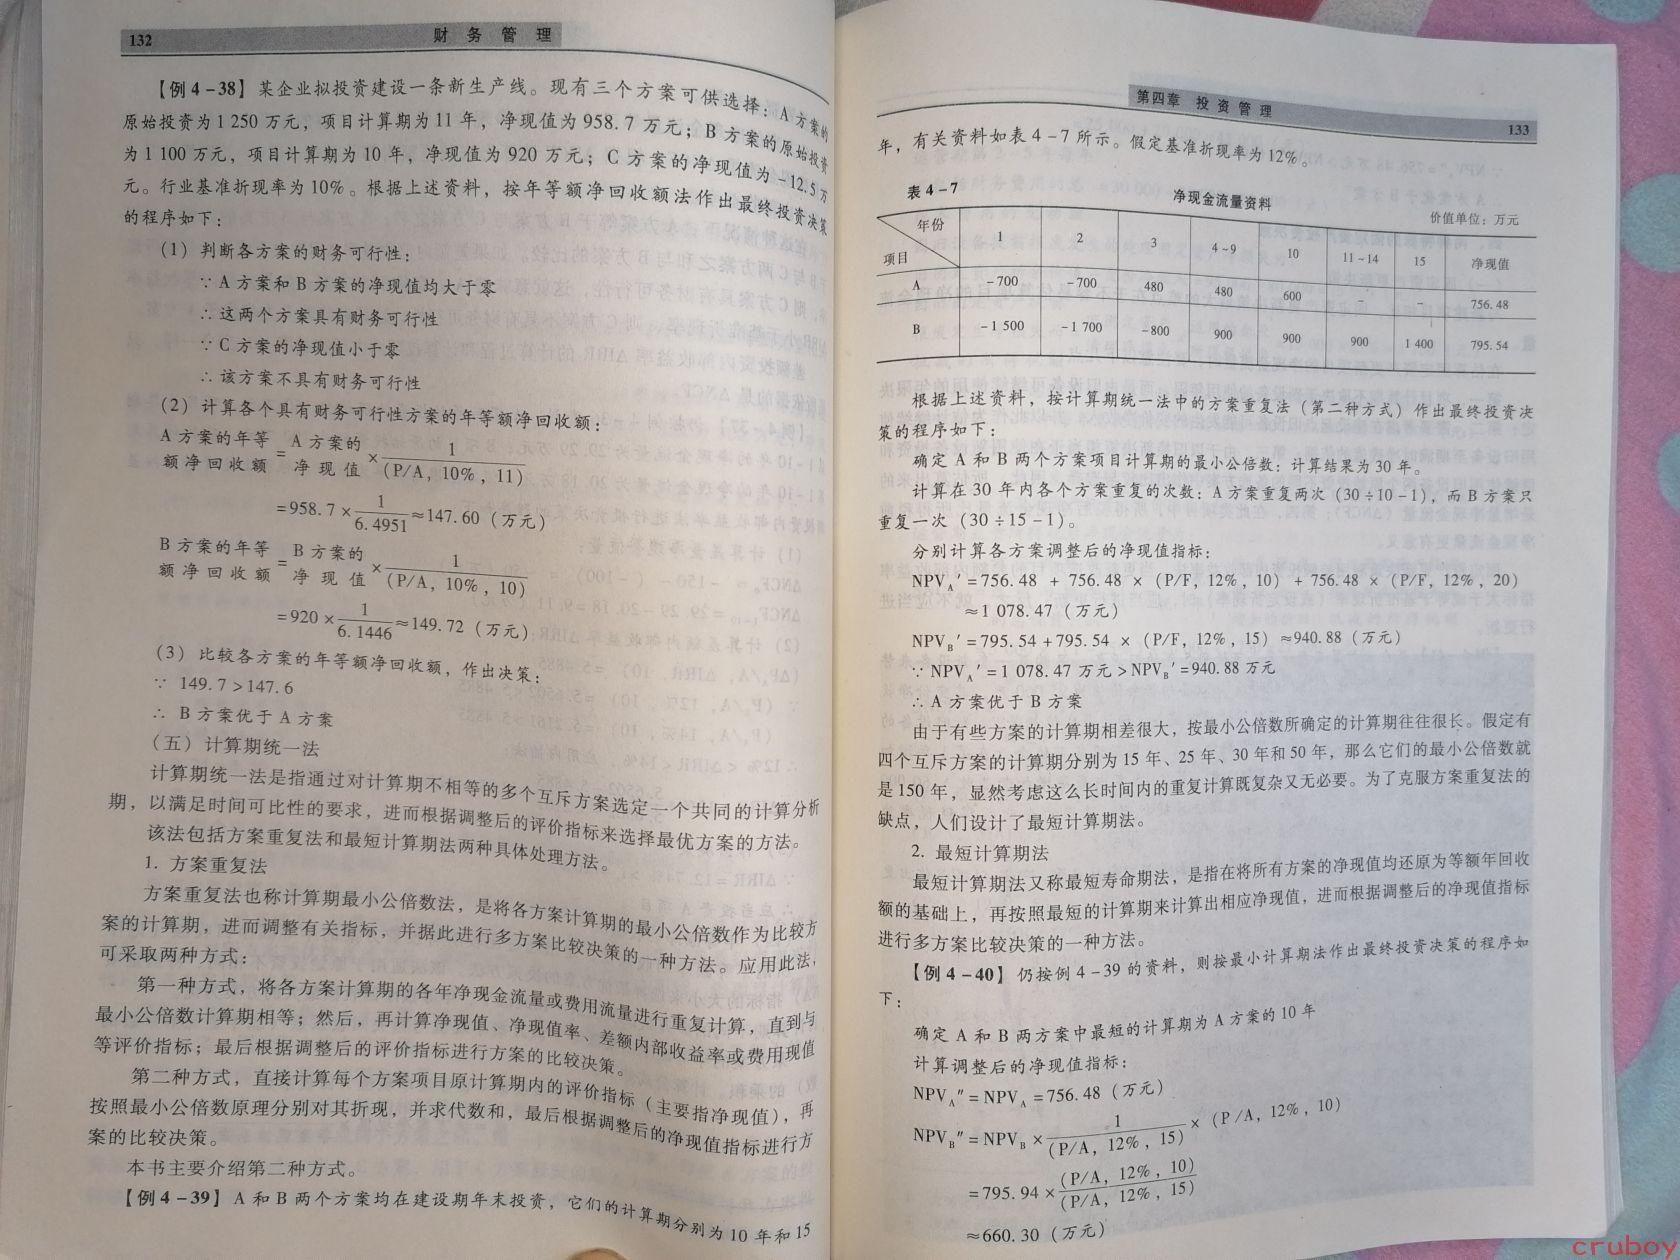 132 财务管理
【例4-38】 某企业拟投资建设一条新生产线。现有三个方案可供选择:A方案的
原始投资为1 250万元,项目计算期为11年,净现值为958.7万元;B方案的原始投资
为1 100万元,项目计算期为10年,净现值为920万元;C方案的净现值为-12.5万
元。行业基准折现率为10%。根据上述资料,按年等额净回收额法作出最终投资决策
的程序如下:
(1) 判断各方案的财务可行性:
∵A方案和B方案的净现值均大于零
∴这两个方案具有财务可行性
∵C方案的净现值小于零
∴该方案不具有财务可行性
(2) 计算各个具有财务可行性方案的年等额净回收额:
A方案的年等额净回收额=A方案的净现值×1/(P/A, 10%, 11)
=958.7×1/6.4951≈147.60(万元)
B方案的年等额净回收额=B方案的净现值×1/(P/A, 10%, 10)
=920×1/6.1446≈149.72(万元)
(3) 比较各方案的年等额净回收额,作出决策:
∵ 149.7>147.6
∴ B方案优于A方案
(五) 计算期统一法
计算期统一法是指通过对计算期不相等的多个互斥方案选定一个共同的计算分析
期,以满足时间可比性的要求,进而根据调整后的评价指标来选择最优方案的方法。
该法包括方案重复法和最短计算期法两种具体处理方法。
1. 方案重复法
方案重复法也称计算期最小公倍数法,是将各方案计算期的最小公倍数作为比较方
案的计算期,进而调整有关指标,并据此进行多方案比较决策的一种方法。应用此法,
可采取两种方式:
第一种方式,将各方案计算期的各年净现金流量或费用流量进行重复计算,直到与
最小公倍数计算期相等;然后,再计算净现值、净现值率、差额内部收益率或费用现值
等评价指标;最后根据调整后的评价指标进行方案的比较决策。
第二种方式,直接计算每个方案项目原计算期内的评价指标(主要指净现值),再
按照最小公倍数原理分别对其折现,并求代数和,最后根据调整后的净现值指标进行方
案的比较决策。
本书主要介绍第二种方式。
【例4-39】 A和B两个方案均在建设期年末投资,它们的计算期分别为10年和15
第四章 投资管理 133
年,有关资料如表4-7所示。假定基准折现率为12%。
表4-7 净现金流量资料 价值单位:万元
项目 年份 1 2 3 4~9 10 11~14 15 净现值
A -700 -700 480 480 600 - - 756.48
B -1 500 -1 700 -800 900 900 900 1 400 795.54
根据上述资料,按计算期统一法中的方案重复法(第二种方式)作出最终投资决
策的程序如下:
确定A和B两个方案项目计算期的最小公倍数:计算结果为30年。
计算在30年内各个方案重复的次数:A方案重复两次(30÷10-1),而B方案只
重复一次(30÷15-1)。
分别计算各方案调整后的净现值指标:
NPV_A′=756.48 + 756.48 ×(P/F, 12%, 10)+ 756.48 ×(P/F, 12%, 20)
≈1 078.47(万元)
NPV_B′=795.54+795.54 ×(P/F, 12%, 15)≈940.88(万元)
∵NPV_A′=1 078.47万元>NPV_B′=940.88万元
∴A方案优于B方案
由于有些方案的计算期相差很大,按最小公倍数所确定的计算期往往很长。假定有
四个互斥方案的计算期分别为15年、25年、30年和50年,那么它们的最小公倍数就
是150年,显然考虑这么长时间内的重复计算既复杂又无必要。为了克服方案重复法的
缺点,人们设计了最短计算期法。
2. 最短计算期法
最短计算期法又称最短寿命期法,是指在将所有方案的净现值均还原为等额年回收
额的基础上,再按照最短的计算期来计算出相应净现值,进而根据调整后的净现值指标
进行多方案比较决策的一种方法。
【例4-40】 仍按例4-39的资料,则按最小计算期法作出最终投资决策的程序如
下:
确定A和B两方案中最短的计算期为A方案的10年
计算调整后的净现值指标:
NPV_A″=NPV_A=756.48(万元)
NPV_B″=NPV_B×1/(P/A, 12%, 15)×(P/A, 12%, 10)
=795.94×(P/A, 12%, 10)/(P/A, 12%, 15)
≈660.30(万元)
cruboy